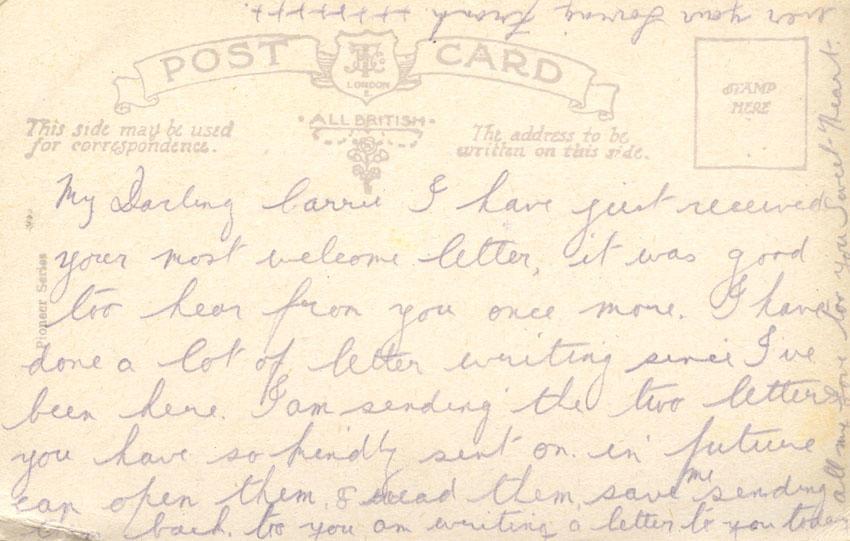 POST CARD
LONDON
ALL BRITISH
STAMP
HERE
This side may be used
for correspondence.
The address to be
written on this side.
Pioneer Series
My Darling Carrie I have just received
your most welcome letter, it was good
too hear from you once more. I have
done a lot of letter writing since I've
been here. I am sending the two letters
you have so kindly sent on. in future
can open them, & read them, save me sending
back. to you am writing a letter to you today
all my love too you Sweet-Heart.
ever your Loving Frank ++++++++.